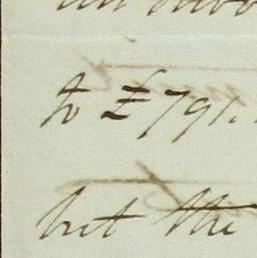 to £791.
but the